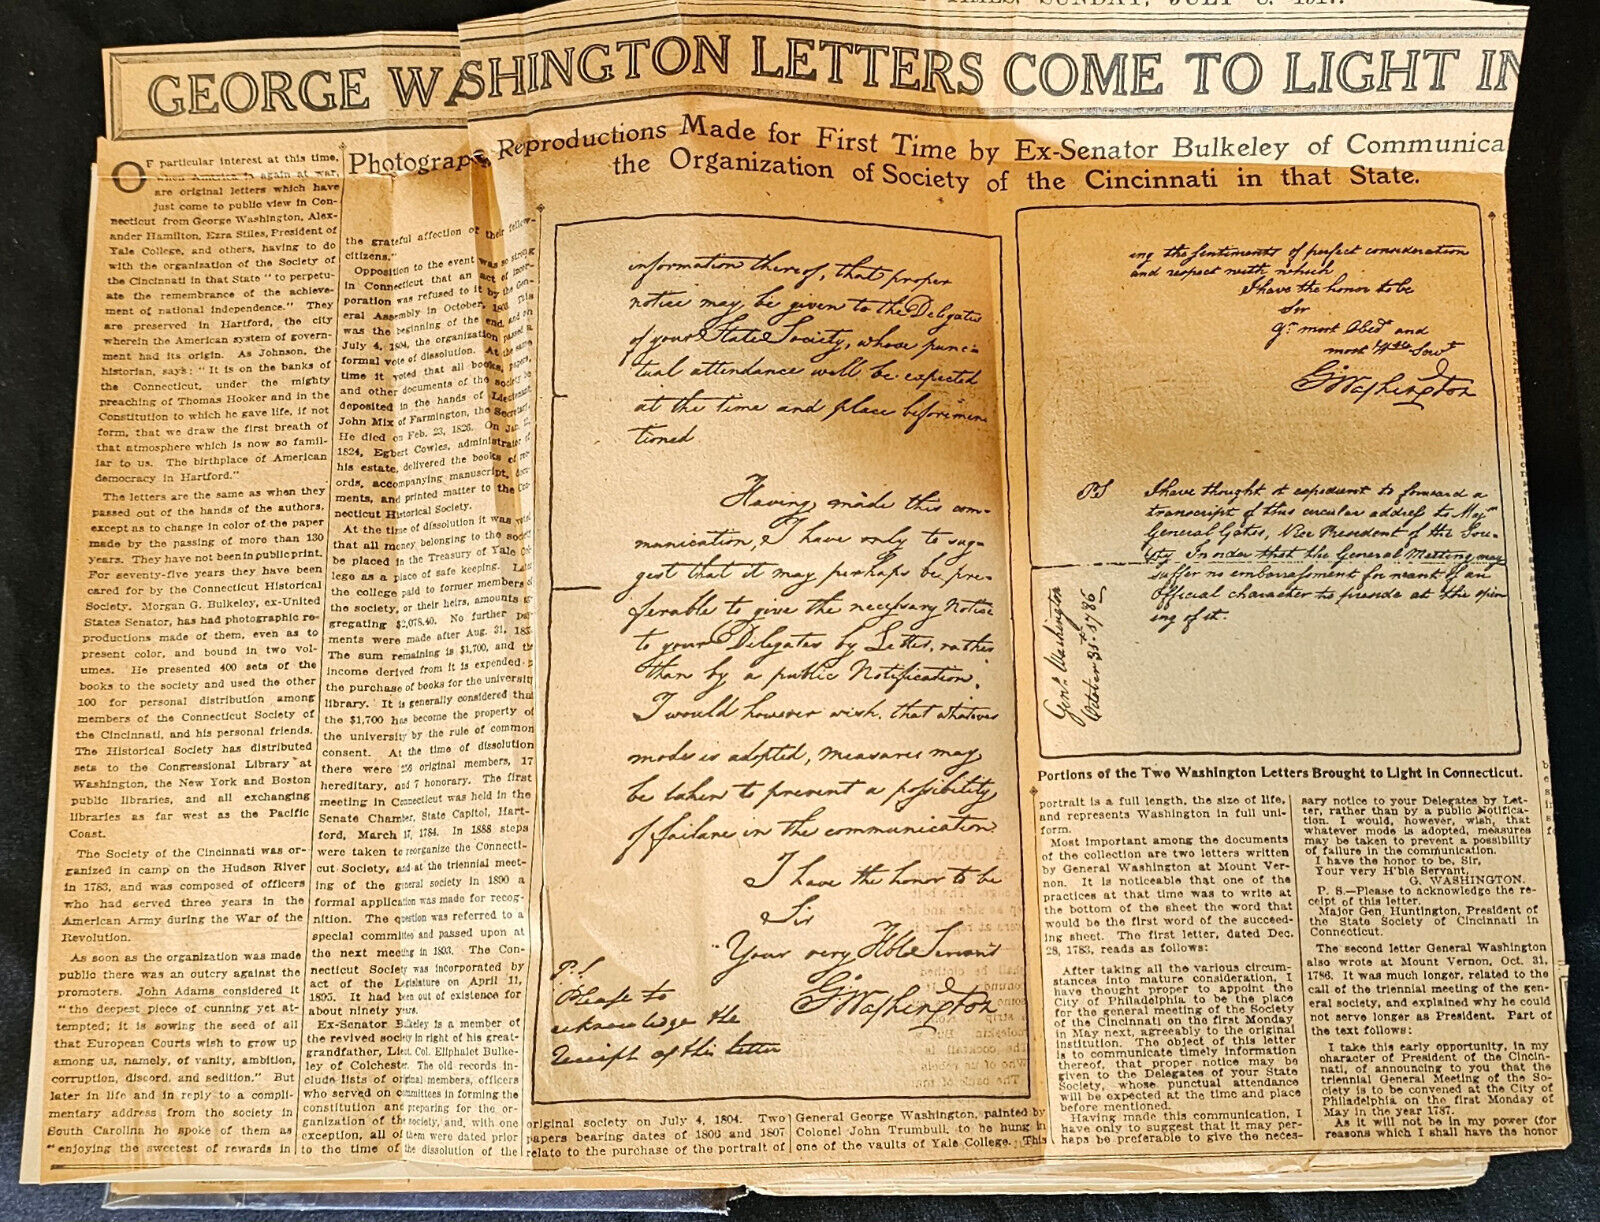 TIMES, SUNDAY, JULY
GEORGE WASHINGTON LETTERS COME TO LIGHT IN
Reproductions Made for First Time by Ex-Senator Bulkeley of Communica
the Organization of Society of the Cincinnati in that State.
OF particular interest at this time,
when America is again at war,
are original letters which have
just come to public view in Con-
necticut from George Washington, Alex-
ander Hamilton, Ezra Stiles, President of
Yale College, and others, having to do
with the organization of the Society of
the Cincinnati in that State "to perpetu-
ate the remembrance of the achieve-
ment of national independence." They
are preserved in Hartford, the city
wherein the American system of govern-
ment had its origin. As Johnson, the
historian, says: "It is on the banks of
the Connecticut, under the mighty
preaching of Thomas Hooker and in the
Constitution to which he gave life, if not
form, that we draw the first breath of
that atmosphere which is now so famil-
iar to us. The birthplace of American
democracy in Hartford."
The letters are the same as when they
passed out of the hands of the authors,
except as to change in color of the paper
made by the passing of more than 130
years. They have not been in public print.
For seventy-five years they have been
cared for by the Connecticut Historical
Society. Morgan G. Bulkeley, ex-United
States Senator, has had photographic re-
productions made of them, even as to
present color, and bound in two vol-
umes. He presented 400 sets of the
books to the society and used the other
100 for personal distribution among
members of the Connecticut Society of
the Cincinnati, and his personal friends.
The Historical Society has distributed
sets to the Congressional Library at
Washington, the New York and Boston
public libraries, and all exchanging
libraries as far west as the Pacific
Coast.
The Society of the Cincinnati was or-
ganized in camp on the Hudson River
in 1783, and was composed of officers
who had served three years in the
American Army during the War of the
Revolution.
As soon as the organization was made
public there was an outcry against the
promoters. John Adams considered it
"the deepest piece of cunning yet at-
tempted; it is sowing the seed of all
that European Courts wish to grow up
among us, namely, of vanity, ambition,
corruption, discord, and sedition." But
later in life and in reply to a compli-
mentary address from the society in
South Carolina he spoke of them as
"enjoying the sweetest of rewards in
the grateful affection of their fellow-
citizens."
Opposition to the event was so strong
in Connecticut that an act of incor-
poration was refused to it by the Gen-
eral Assembly in October, 1803. This
was the beginning of the end, and on
July 4, 1804, the organization passed a
formal vote of dissolution. At the same
time it voted that all books, papers,
and other documents of the society be
deposited in the hands of Lieutenant
John Mix of Farmington, the Secretary.
He died on Feb. 23, 1826. On Jan.
1824, Egbert Cowles, administrator of
his estate, delivered the books of rec-
ords, accompanying manuscript, docu-
ments, and printed matter to the Con-
necticut Historical Society.
At the time of dissolution it was voted
that all money belonging to the society
be placed in the Treasury of Yale Col-
lege as a place of safe keeping. Later
the college paid to former members of
the society, or their heirs, amounts ag-
gregating $2,078.40. No further pay-
ments were made after Aug. 31,
The sum remaining is $1,700, and the
income derived from it is expended
the purchase of books for the university
library. It is generally considered that
the $1,700 has become the property of
the university by the rule of common
consent. At the time of dissolution
there were 256 original members, 17
hereditary, and 7 honorary. The first
meeting in Connecticut was held in the
Senate Chamber, State Capitol, Hart-
ford, March 17, 1784. In 1888 steps
were taken to reorganize the Connecti-
cut Society, and at the triennial meet-
ing of the general society in 1890 a
formal application was made for recog-
nition. The question was referred to a
special committee and passed upon at
the next meeting in 1893. The Con-
necticut Society was incorporated by
act of the Legislature on April 11,
1895. It had been out of existence for
about ninety years.
Ex-Senator Bulkeley is a member of
the revived society in right of his great-
grandfather, Lieut. Col. Eliphalet Bulke-
ley of Colchester. The old records in-
clude lists of original members, officers
who served on committees in forming the
constitution and preparing for the or-
ganization of the society, and, with one
exception, all of them were dated prior
to the time of the dissolution of the
information thereof, that proper
notice may be given to the Delegates
of your State Society, whose punc-
tual attendance will be expected
at the time and place beforemen
tioned
Having made this com-
munication, I have only to sug-
gest that it may perhaps be pre-
ferable to give the necessary Notice
to your Delegates by Letter, rather
than by a public Notification.
I would however wish, that whatever
mode is adopted, measures may
be taken to prevent a possibility
of failure in the communication.
I have the honor to be
Sir
Your very Hble Servant
GWashington
P.S.
Please to
acknowledge the
receipt of this letter
original society on July 4, 1804. Two
papers bearing dates of 1806 and 1807
relate to the purchase of the portrait of
General George Washington, painted by
Colonel John Trumbull, to be hung in
one of the vaults of Yale College. This
ing the sentiments of perfect consideration
and respect with which
I have the honor to be
Sir
Yr. most Obedt and
most Hble Servt
GWashington
PS I have thought it expedient to forward a
transcript of this circular address to Majr
General Gates, Vice President of the Soci-
ety In order that the General Meeting may
suffer no embarrassment for want of an
Official character to preside at the open
ing of it.
Genl. Washington
October 31st. 1786
Portions of the Two Washington Letters Brought to Light in Connecticut.
portrait is a full length, the size of life,
and represents Washington in full uni-
form.
Most important among the documents
of the collection are two letters written
by General Washington at Mount Ver-
non. It is noticeable that one of the
practices at that time was to write at
the bottom of the sheet the word that
would be the first word of the succeed-
ing sheet. The first letter, dated Dec.
28, 1783, reads as follows:
After taking all the various circum-
stances into mature consideration, I
have thought proper to appoint the
City of Philadelphia to be the place
for the general meeting of the Society
of the Cincinnati on the first Monday
in May next, agreeably to the original
institution. The object of this letter
is to communicate timely information
thereof, that proper notice may be
given to the Delegates of your State
Society, whose punctual attendance
will be expected at the time and place
before mentioned.
Having made this communication, I
have only to suggest that it may per-
haps be preferable to give the neces-
sary notice to your Delegates by Let-
ter, rather than by a public Notifica-
tion. I would, however, wish, that
whatever mode is adopted, measures
may be taken to prevent a possibility
of failure in the communication.
I have the honor to be, Sir,
Your very H'ble Servant,
G. WASHINGTON.
P. S.—Please to acknowledge the re-
ceipt of this letter.
Major Gen. Huntington, President of
the State Society of Cincinnati in
Connecticut.
The second letter General Washington
also wrote at Mount Vernon, Oct. 31,
1786. It was much longer, related to the
call of the triennial meeting of the gen-
eral society, and explained why he could
not serve longer as President. Part of
the text follows:
I take this early opportunity, in my
character of President of the Cincin-
nati, of announcing to you that the
triennial General Meeting of the So-
ciety is to be convened at the City of
Philadelphia on the first Monday of
May in the year 1787.
As it will not be in my power (for
reasons which I shall have the honor